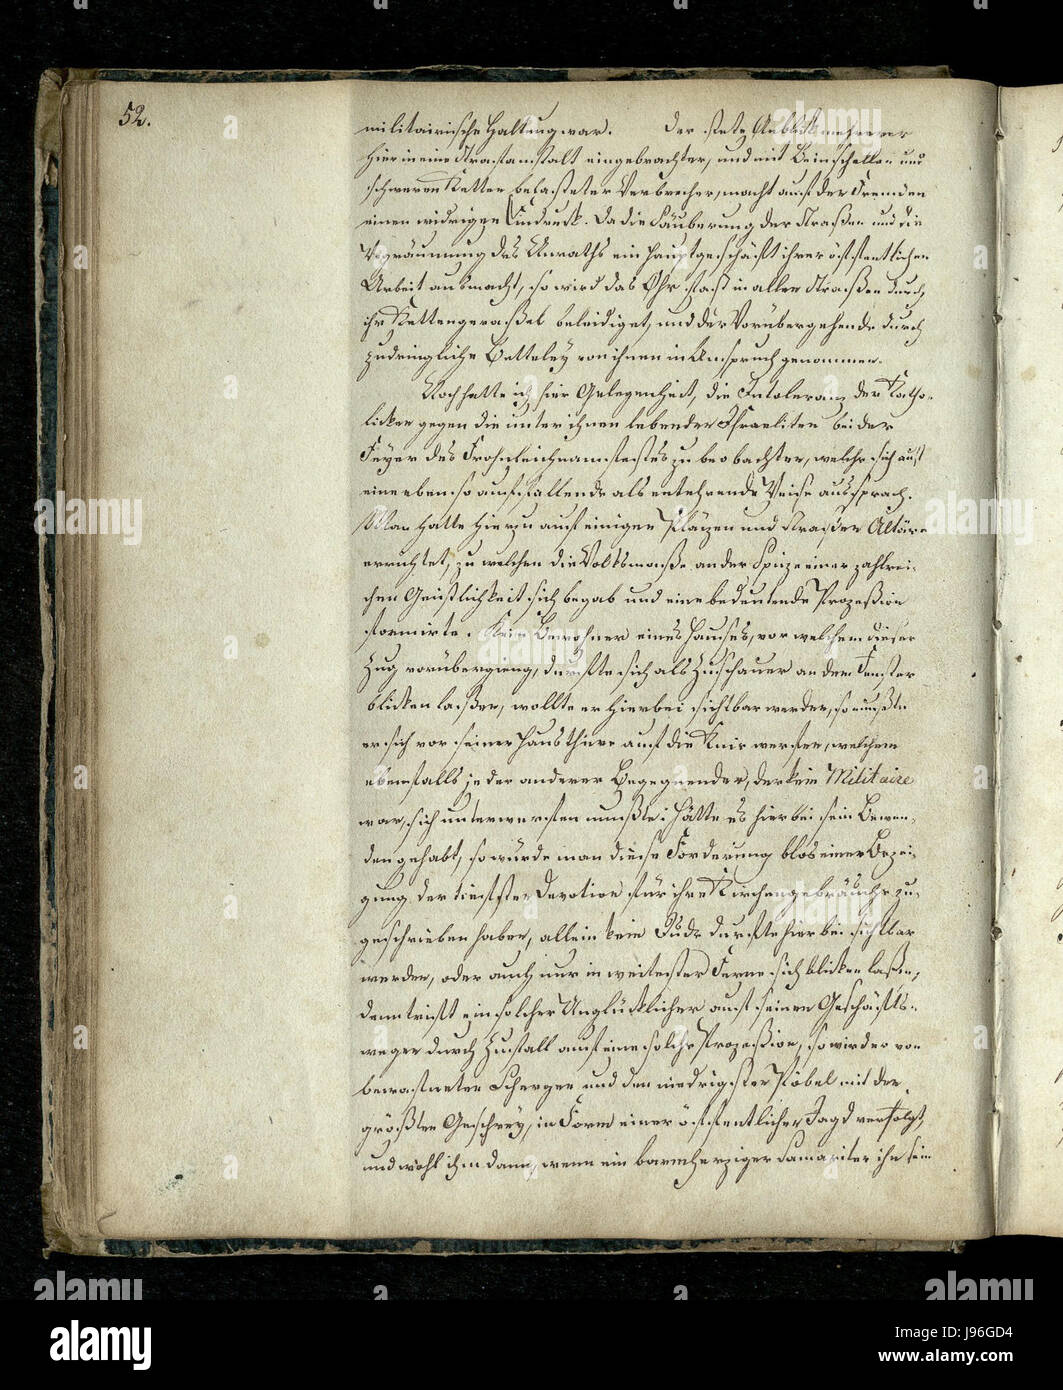 52.
militairische Haltung war. Der stete Anblick mehrerer
hier in eine Strafanstalt eingebrachter, und mit Beinschellen und
schweren Ketten belasteter Verbrecher, macht auf den Fremden
einen widrigen Eindruck. Da die Säuberung der Straßen und die
Wegräumung des Unraths ein Hauptgeschäft ihrer öffentlichen
Arbeit ausmacht, so wird das Ohr fast in allen Straßen durch
ihr Kettengeraßel beleidiget, und der Vorübergehende durch
zudringliche Betteley von ihnen in Anspruch genommen.
Noch hatte ich hier Gelegenheit, die Intoleranz der Katho-
licken gegen die unter ihnen lebenden Israeliten bei der
Feyer des Frohnleichnamsfestes zu beobachten, welche sich auf
eine eben so auffallende als entehrende Weise aussprach.
Man hatte hierzu auf einigen Pläzen und Straßen Altäre
errichtet, zu welchen die Volksmaße an der Spize einer zahlrei-
chen Geistlichkeit sich begab und eine bedeutende Prozeßion
formirte. Kein Bewohner eines Hauses, vor welchem dieser
Zug vorübergieng, durfte sich als Zuschauer an dem Fenster
blicken laßen, wollte er hierbei sichtbar werden, so mußte
er sich vor seiner Hausthüre auf die Knie werfen, welchem
ebenfalls jeder anderer Begegnender, der kein Militaire
war, sich unterwerfen mußte: Hätte es hierbei sein Bewen-
den gehabt, so würde man diese Forderung blos einer Bezei-
gung der tiefsten Devotion für ihre Kirchengebräuche zu-
geschrieben haben, allein kein Jude durfte hierbei sichtbar
werden, oder auch nur in weitester Ferne sich blicken laßen,
denn trift ein solcher Unglücklicher auf seinen Geschäfts-
wegen durch Zufall auf eine solche Prozeßion, so wird er von
bewafneten Schergen und dem niedrigsten Pöbel mit dem
größten Geschrey, in Form einer öffentlichen Jagd verfolgt,
und wohl ihm dann, wenn ein barmherziger Samariter ihn sein
alamy
a
alamy stock photo
Image ID: J96GD4
www.alamy.com